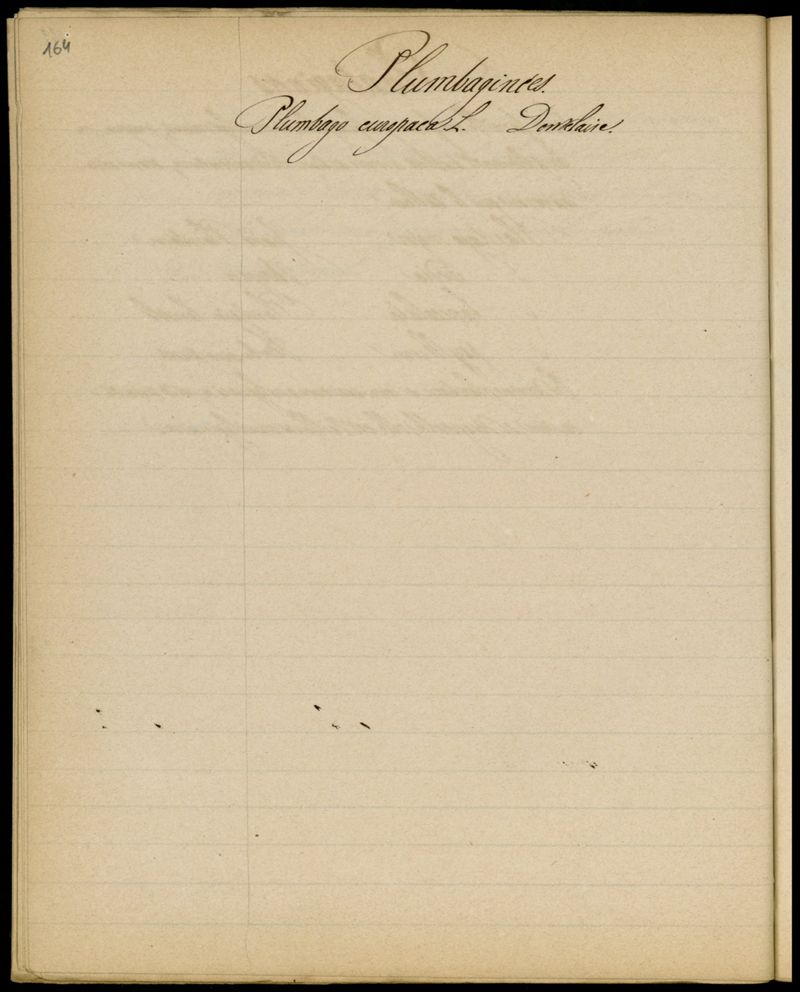 164
Plumbaginées.
Plumbago europaea L. Dentelaire.